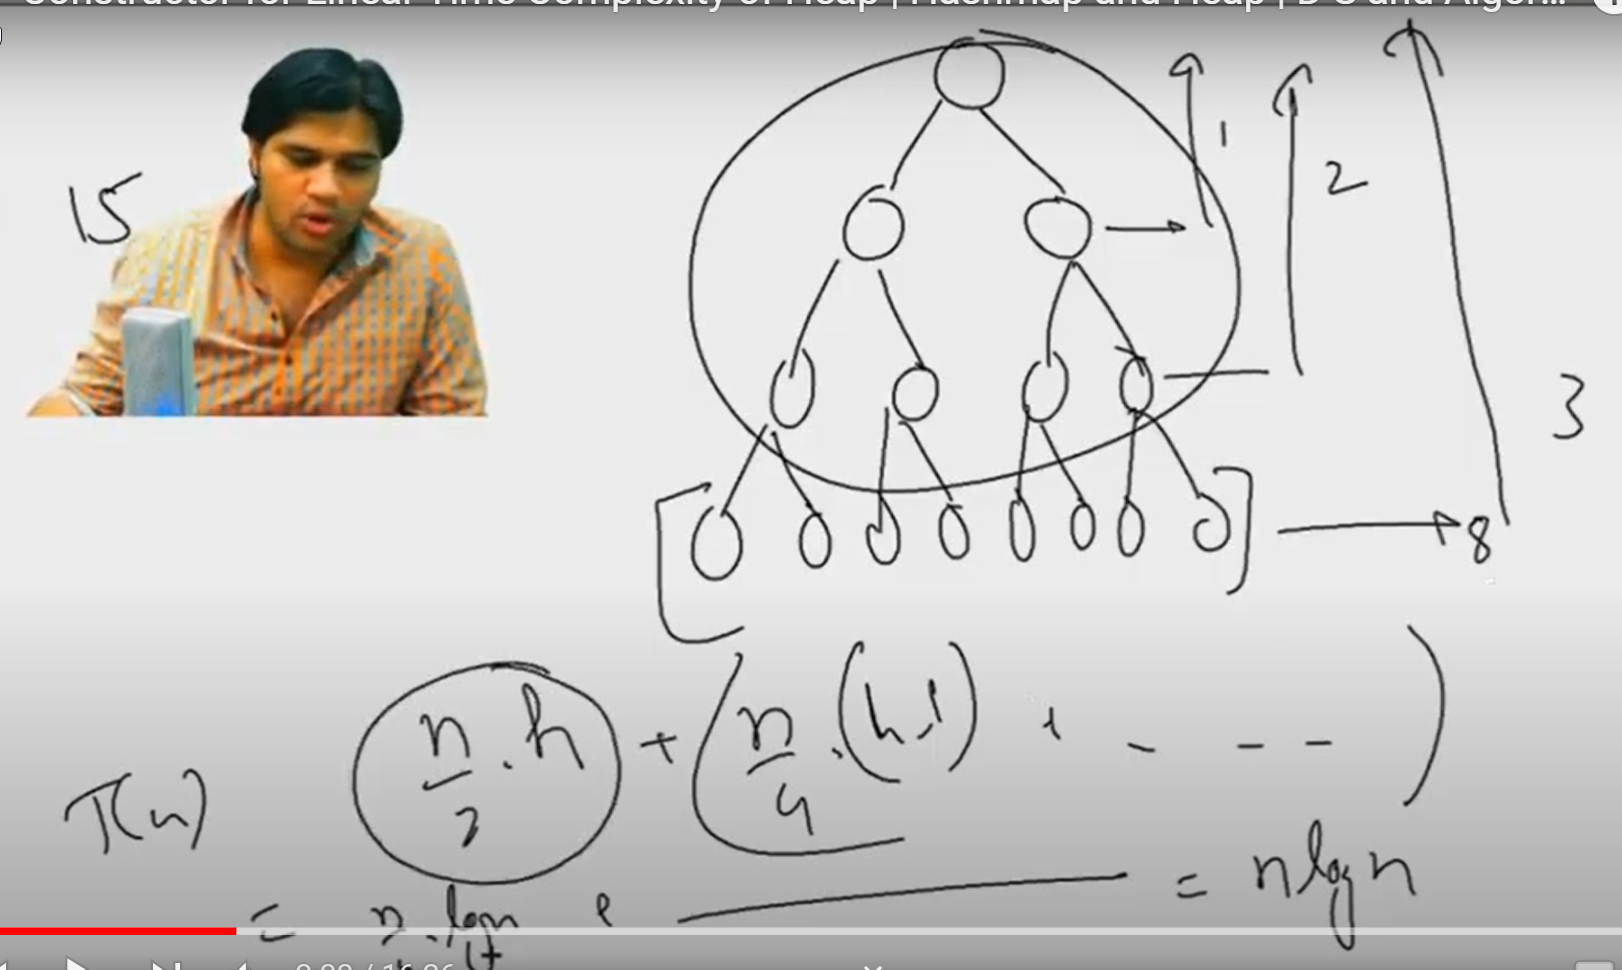 Constructor for Linear Time Complexity of Heap | Hashmap and Heap | D S and Algor...
15
1
2
3
8
T(n)
n/2 . h + (n/4 . (h-1) + - - -)
= n log n + = n log n